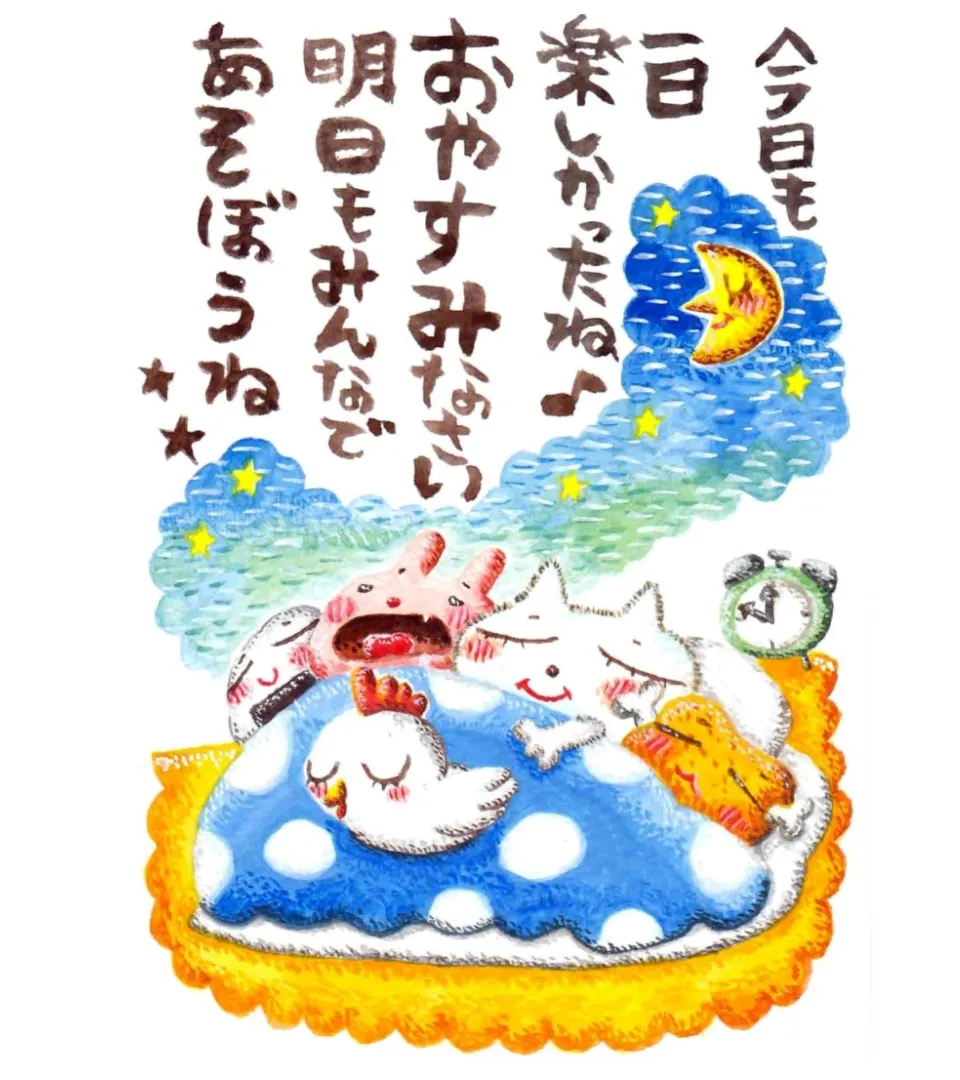 今日も
一日
楽しかったね♪
おやすみなさい
明日もみんなで
あそぼうね
★★